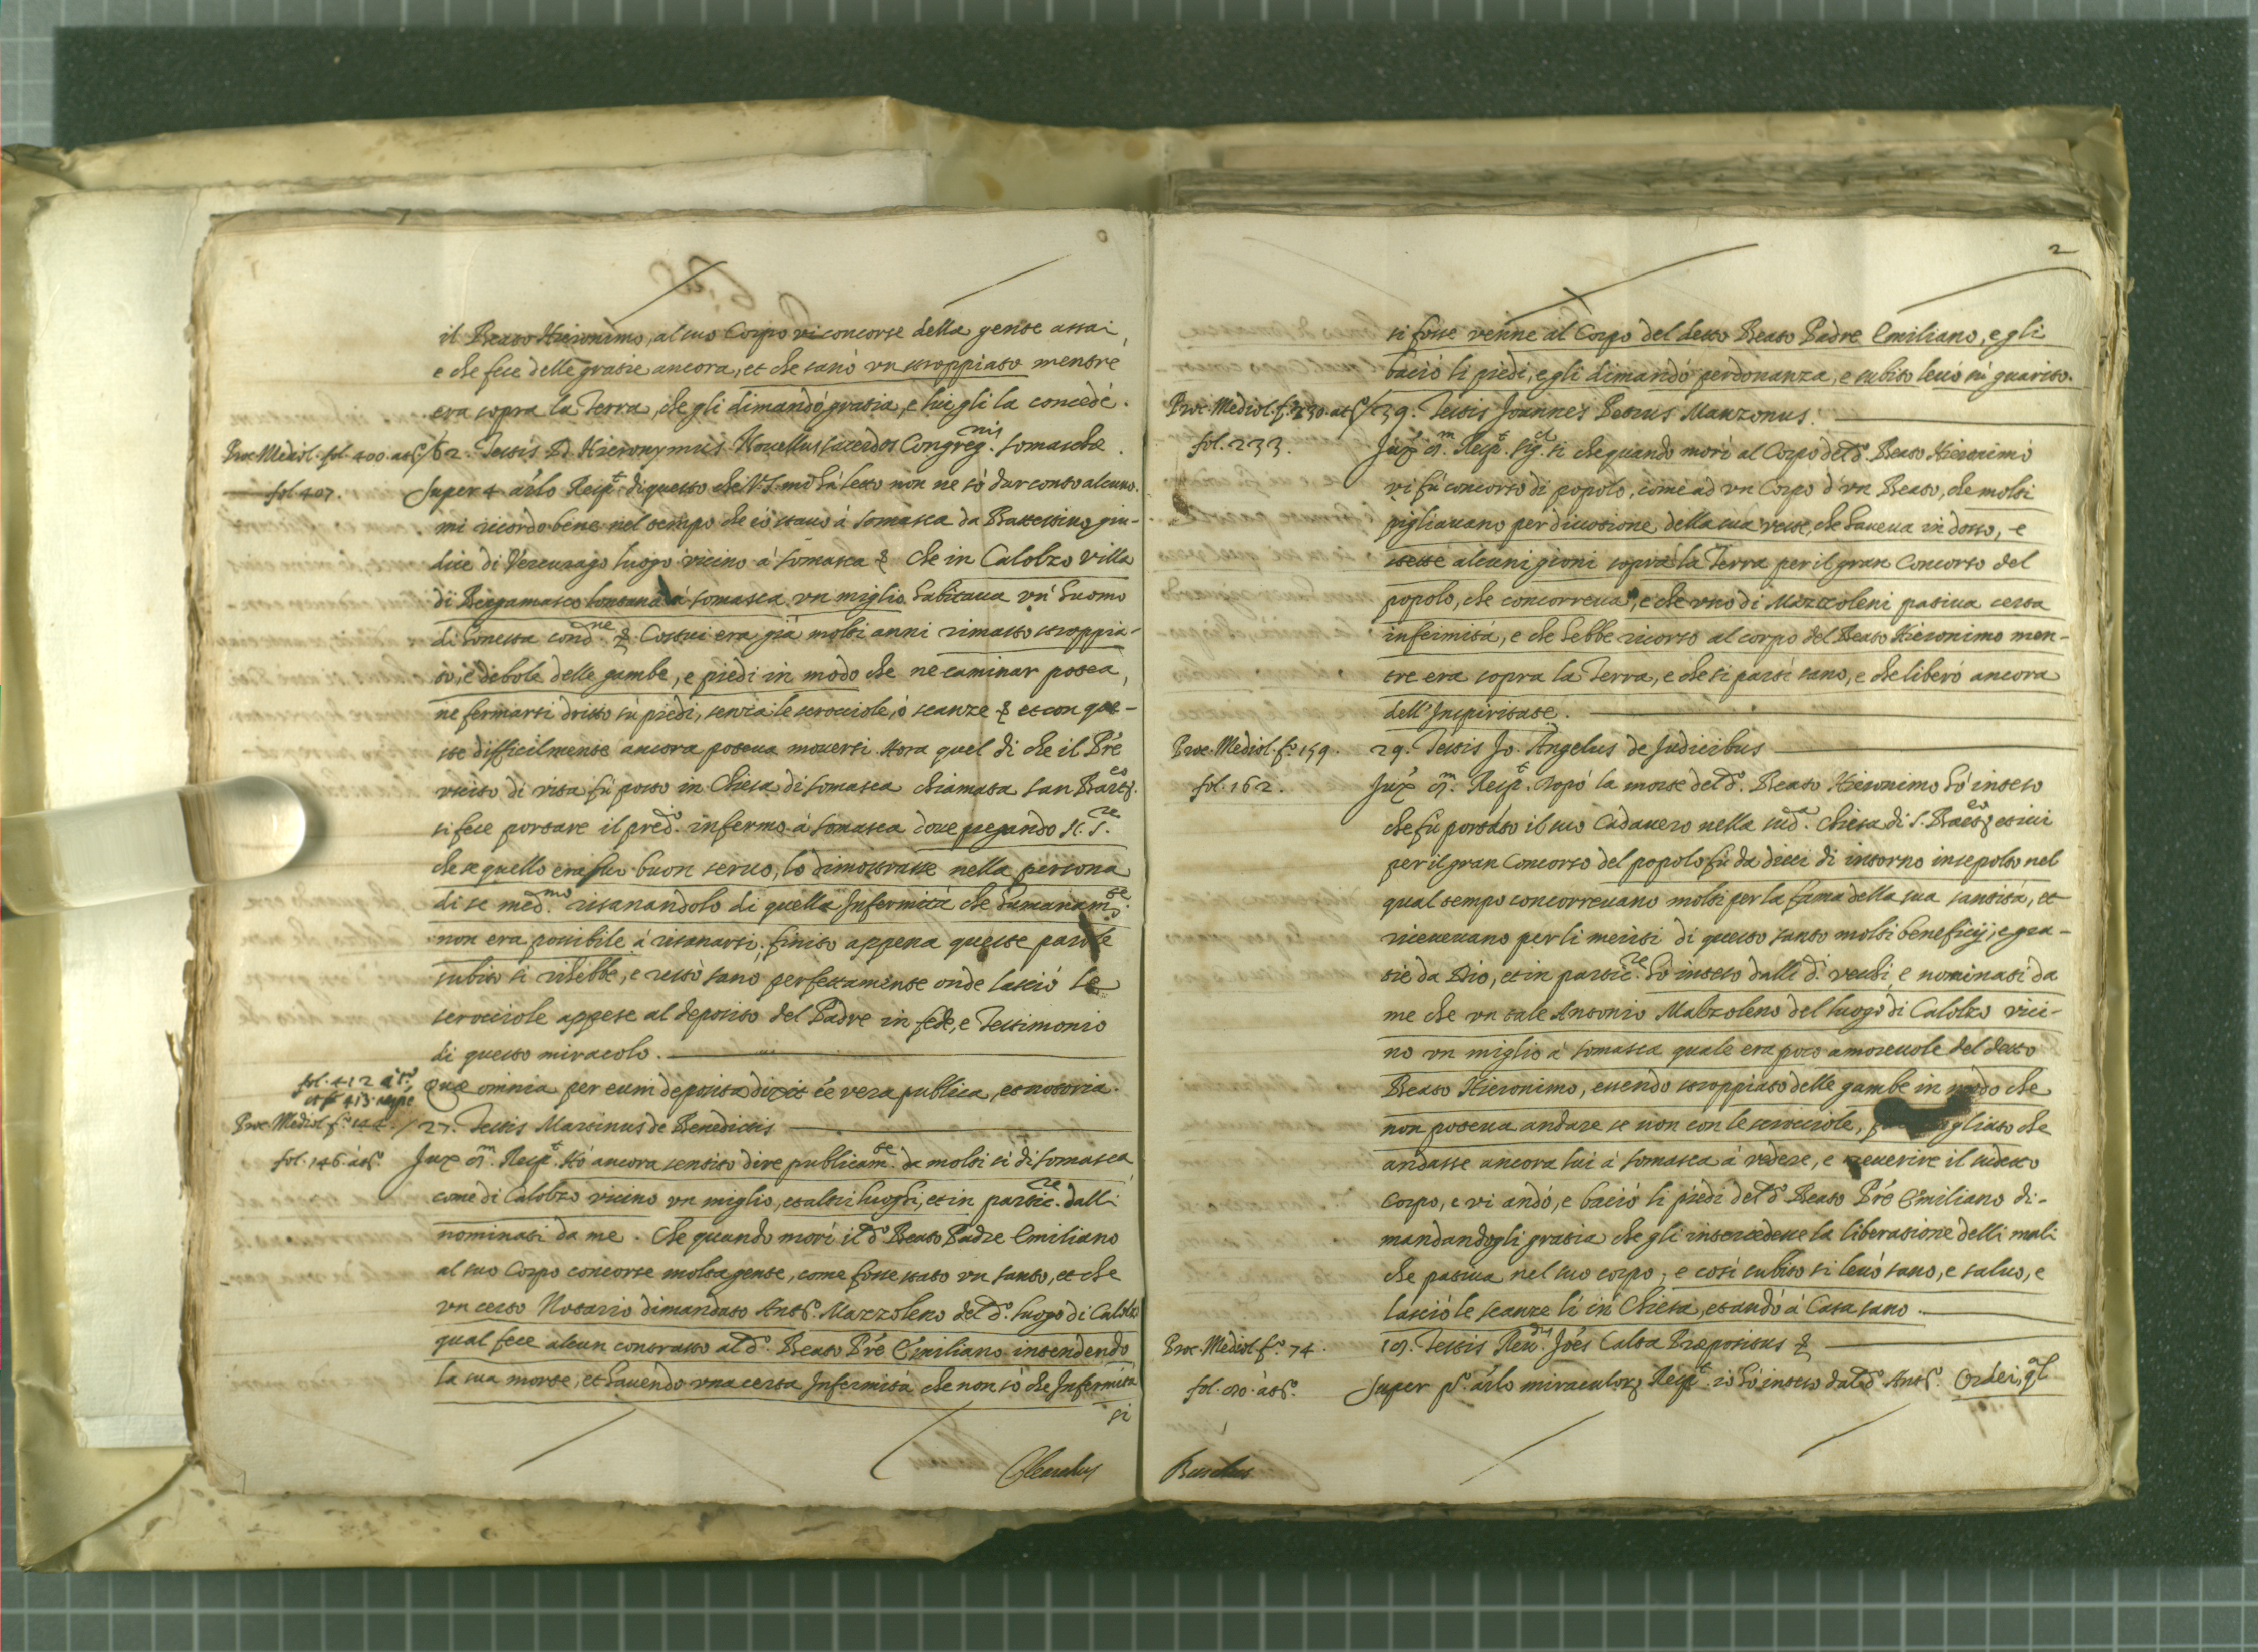 il Beato Hieronimo, al suo Corpo vi concorse della gente assai,
e che fece delle gratie ancora, et che sanò un stroppiato mentre
era sopra la Terra, che gli dimandò gratia, e lui gli la concedé.
Proc. Mediol. fol. 400. at.º / 62. Testis P. D. Hieronymus Novellus sacerdos Congreg.nis Somaschæ.
fol. 407. Super 4 arlo Resp.t di questo che V. S. mi hà letto non ne sò dar conto alcuno.
mi ricordo bene nel tempo che io stavo à Somasca da Battistino giu-
dice di Vercurago luogo vicino à Somasca & Che in Calolzo villa
di Bergamasco lontana à Somasca un miglio habitava un' huomo
di honesta cond.ne & Costui era già molti anni rimasto stroppia-
to, e debole delle gambe, e piedi in modo che ne caminar potea,
ne fermarsi dritto sù piedi, senza le scrocciole, ò scanze & et con que-
ste difficilmente ancora poteva moversi. Hora quel dì che il Pre
uscito di vita fù posto in Chiesa di Somasca chiamata San Bart.eo
si fece portare il pred.o infermo à Somasca dove pregando N. S.re
che se quello era suo buon servo, lo dimostrasse nella persona
di se med.mo risanandolo di quella Infermità che humanam.te
non era possibile à risanarsi, finito appena queste parole
subito si rihebbe, e restò sano perfettamente onde lasciò le
scrocciole appese al deposito del Padre in fede, e Testimonio
di questo miracolo.
fol. 412 at.º Quæ omnia per eum deposita dixit ée vera publica, et notoria.
et fº 413.
Proc. Mediol. fº 144. / 27. Testis Martinus de Benedictis
fol. 146. at.º Jux 9.m Resp.t Hò ancora sentito dire publicam.te da molti sì di Somasca
come di Calolzo vicino un miglio, et altri luoghi, et in partic.re dalli
nominati da me. Che quando morì il d.º Beato Padre Emiliano
al suo Corpo concorse molta gente, come fosse stato un santo, et che
un certo Notario dimandato Ant.º Mazzoleno del d.º luogo di Calolzo
qual fece alcun contrasto al d.º Beato Pre Emiliano intendendo
la sua morte, et havendo una certa Infermità che non sò che Infermità
si
2
si fosse venne al Corpo del detto Beato Padre Emiliano, e gli
baciò li piedi, e gli dimandò perdonanza, e subito levò sù guarito.
Proc. Mediol. fº 230. at.º / 39. Testis Joannes Petrus Manzonus.
fol. 233. Jux 9.m Resp.t sig.r si che quando morì al Corpo del d.º Beato Hieronimo
vi fù concorso di popolo, come ad un Corpo d'un Beato, che molti
pigliavano per divotione della sua veste, che haveva in dosso, e
stette alcuni giorni sopra la Terra per il gran Concorso del
popolo, che concorreva, e che uno di Mazzoleni pativa certa
infermità, e che hebbe ricorso al corpo del Beato Hieronimo men-
tre era sopra la Terra, e che si partì sano, e che liberò ancora
dell'Inspiritate.
Proc. Mediol. fº 159. 29. Testis Jo. Angelus de Judicibus
fol. 162. Jux 9.m Resp.t Dopò la morte del d.º Beato Hieronimo hò inteso
che fù portato il suo Cadavero nella sud.a Chiesa di S. Bart.eo et ivi
per il gran Concorso del popolo fù da dieci dì intorno insepolto nel
qual tempo concorrevano molti per la fama della sua santità, et
ricevevano per li meriti di questo santo molti beneficij, e gra-
tie da Dio, et in partic.re hò inteso dalli d.i vechi, e nominati da
me che un tale Antonio Malzoleno del luogo di Calolzo vici-
no un miglio à Somasca quale era poco amorevole del detto
Beato Hieronimo, essendo stroppiato delle gambe in modo che
non poteva andare se non con le scrocciole, gliato che
andasse ancora lui à Somasca à vedere, e reverire il sudetto
Corpo, e vi andò, e baciò li piedi del d.º Beato Pre Emiliano di-
mandandogli gratia che gli intercedeve la liberatione delli mali
che pativa nel suo corpo, e così subito si levò sano, e salvo, e
lasciò le scanze lì in Chiesa, et andò à Casa sano.
Proc. Mediol. fº 74. 19. Testis Rev.dus Joés Calta Præpositus &
fol. 90. at.º Super pº arlo miraculor. Resp.t io hò inteso dal d.º Ant.º Ordei, ql